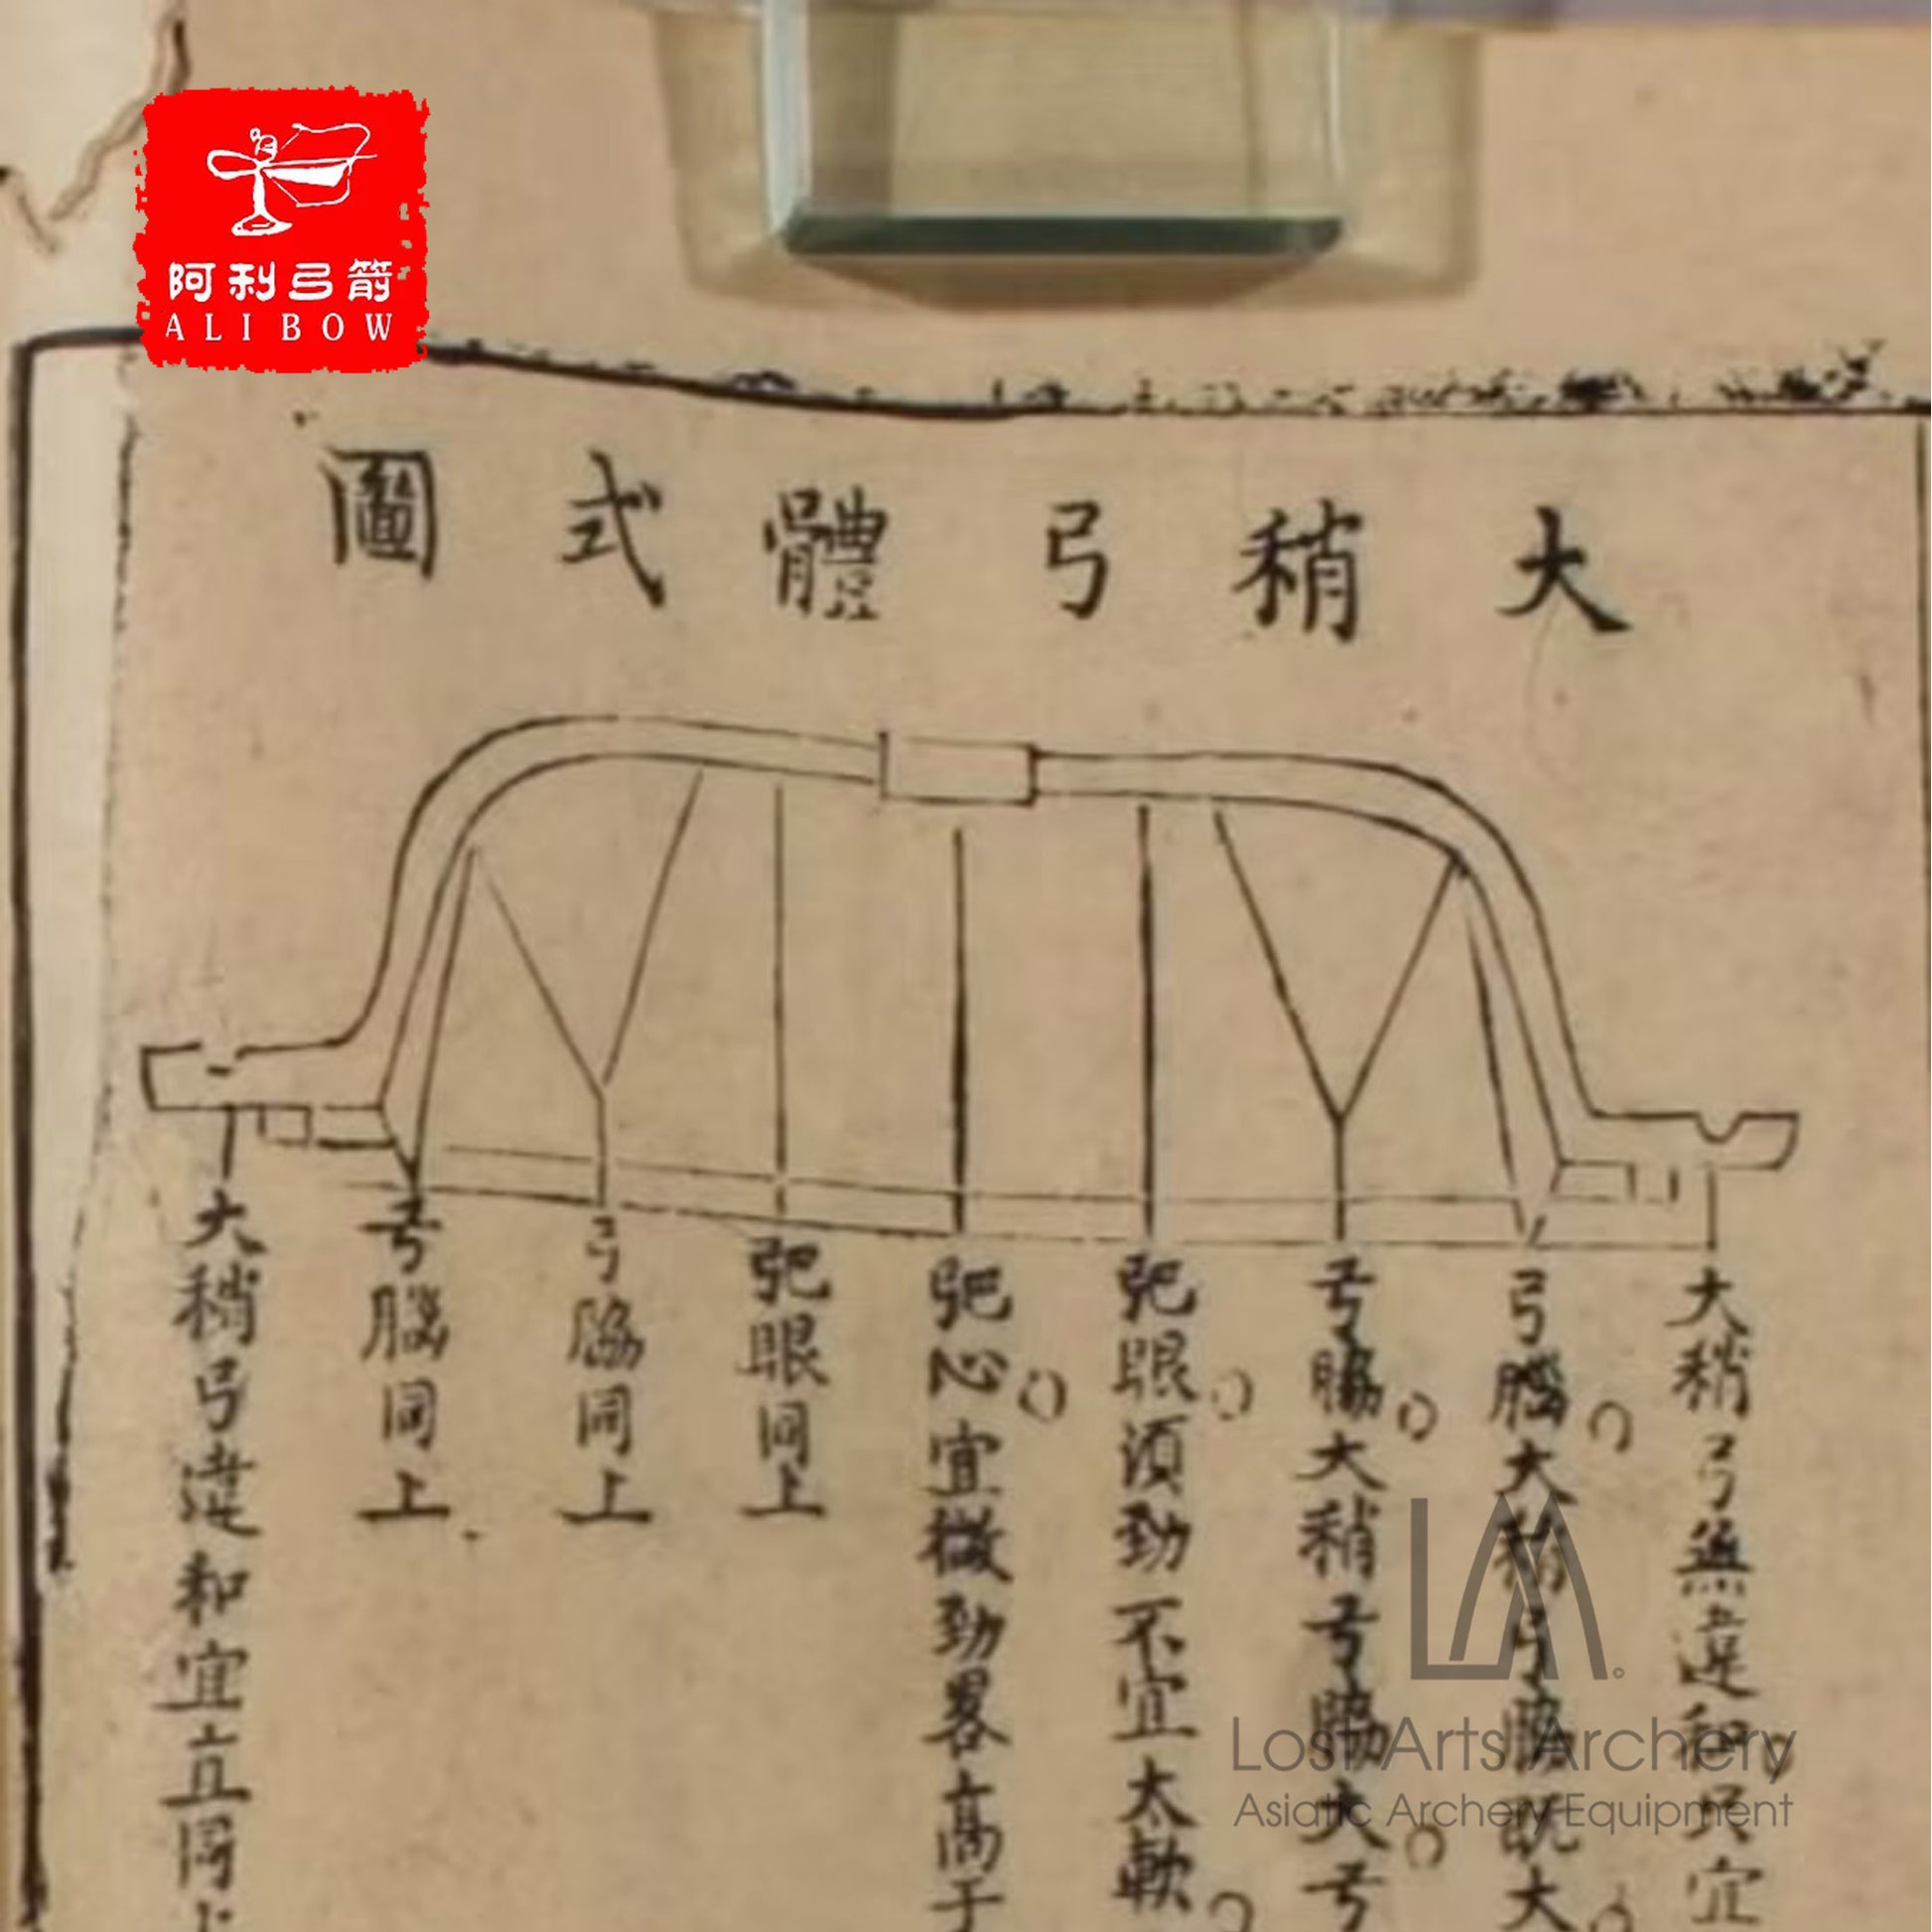 阿利弓箭
ALIBOW
大稍弓體式圖
大稍弓無違和只宜
弓腦大稍弓腦既大
弓脇大稍弓脇大弓
弝眼須勁不宜太軟
弝心宜微勁畧高于
弝眼同上
弓脇同上
弓腦同上
大稍弓違和宜立同上
Lost Arts Archery
Asiatic Archery Equipment